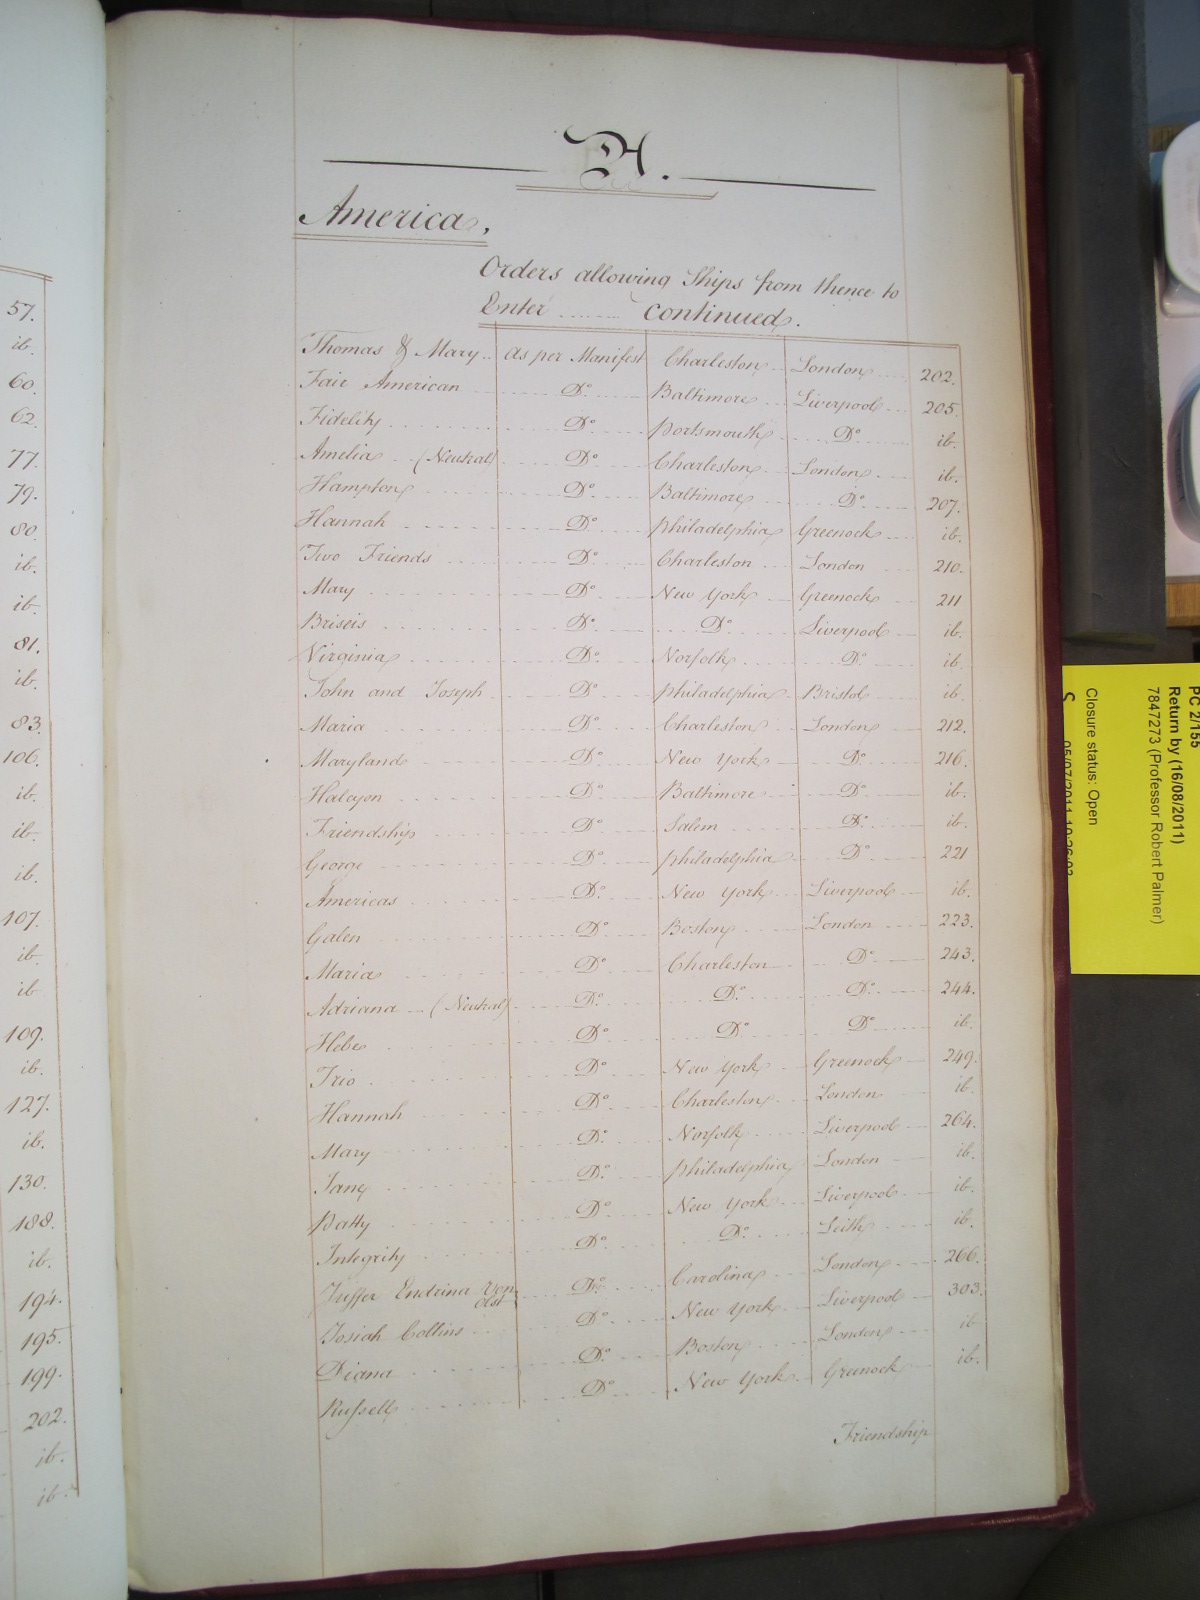 57.
ib.
60.
62.
77.
79.
80.
ib.
ib.
81.
ib.
83.
106.
ib.
ib.
ib.
107.
ib.
ib
109.
ib.
127.
ib.
130.
188.
ib.
194.
195.
199.
202.
ib.
ib.
A.
America,
Orders allowing Ships from thence to
Enter ...... continued.
Thomas & Mary.. As per Manifest Charleston London 202.
Fair American Do. Baltimore Liverpool 205.
Fidelity Do. Portsmouth Do. ib.
Amelia (Neutral) Do. Charleston London ib.
Hampton Do. Baltimore Do. 207.
Hannah Do. Philadelphia Greenock ib.
Two Friends Do. Charleston London 210.
Mary Do. New York Greenock 211
Briseis Do. Do. Liverpool ib.
Virginia Do. Norfolk Do. ib
John and Joseph Do. Philadelphia Bristol ib.
Maria Do. Charleston London 212.
Maryland Do. New York Do. 216.
Halcyon Do. Baltimore Do. ib.
Friendship Do. Salem Do. ib.
George Do. Philadelphia Do. 221
Americas Do. New York Liverpool ib.
Galen Do. Boston London 223.
Maria Do. Charleston Do. 243.
Adriana (Neutral) Do. Do. Do. 244.
Hebe Do. Do. Do. ib.
Trio Do. New York Greenock 249.
Hannah Do. Charleston London ib.
Mary Do. Norfolk Liverpool 264.
Jane Do. Philadelphia London ib.
Patty Do. New York Liverpool ib.
Integrity Do. Do. Leith ib.
Juffer Endrina Von Do. Carolina London 266.
Josiah Collins Do. New York Liverpool 303.
Diana Do. Boston London ib
Russell Do. New York Greenock ib.
Friendship
PC 2/155
Return by (16/08/2011)
7847273 (Professor Robert Palmer)
Closure status: Open